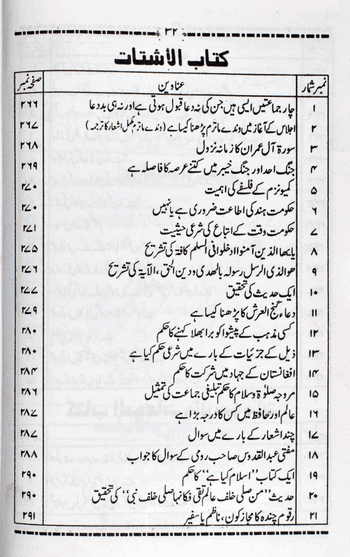 ۳۲
کتاب الاشتات
نمبر شمار عناوین صفحہ نمبر
۱ چار جماعتیں ایسی ہیں جن کی نہ دعا قبول ہوتی ہے اور نہ ہی بد دعا ۲۶۶
۲ اجلاس کے آغاز میں وندے ماترم پڑھنا کیسا ہے (وندے ماترم مکمل اشعار کا ترجمہ) ۲۶۷
۳ سورۃ آل عمران کا زمانہ نزول ۲۶۸
۴ جنگ احد اور جنگ خیبر میں کتنے عرصہ کا فاصلہ ہے ۲۶۹
۵ کمیونزم کے فلسفے کی اہمیت ۲۷۰
۶ حکومت ہند کی اطاعت ضروری ہے یا نہیں ۲۷۰
۷ حکومت وقت کے اتباع کی شرعی حیثیت ۲۷۱
۸ یایھا الذین آمنوا ادخلوا فی السلم کافۃ کی تشریح ۲۷۵
۹ ھو الذی ارسل رسولہ بالھدی و دین الحق، الآیہ کی تشریح ۲۷۶
۱۰ ایک حدیث کی تحقیق ۲۷۷
۱۱ دعاء گنج العرش کا پڑھنا کیسا ہے ۲۷۹
۱۲ کسی مذہب کے پیشوا کو برا بھلا کہنے کا حکم ۲۸۰
۱۳ ذیل کے جزئیات کے بارے میں شرعی حکم کیا ہے ۲۸۰
۱۴ افغانستان کے جہاد میں شرکت کا حکم ۲۸۴
۱۵ مروجہ صلوۃ و سلام کا حکم تبلیغی جماعت کی تمثیل ۲۸۶
۱۶ عالم اور حافظ میں کس کا درجہ بڑا ہے ۲۸۷
۱۷ چند اشعار کے بارے میں سوال ۲۸۷
۱۸ مفتی عبدالقدوس صاحب رومی کے سوال کا جواب ۲۸۸
۱۹ ایک کتاب "اسلام کیا ہے" کا حکم ۲۹۰
۲۰ حدیث "من صلی خلف عالم تقی فکانما صلی خلف نبی" کی تحقیق ۲۹۰
۲۱ رقوم چندہ کا مجاز کون، ناظم یا سفیر ۲۹۱